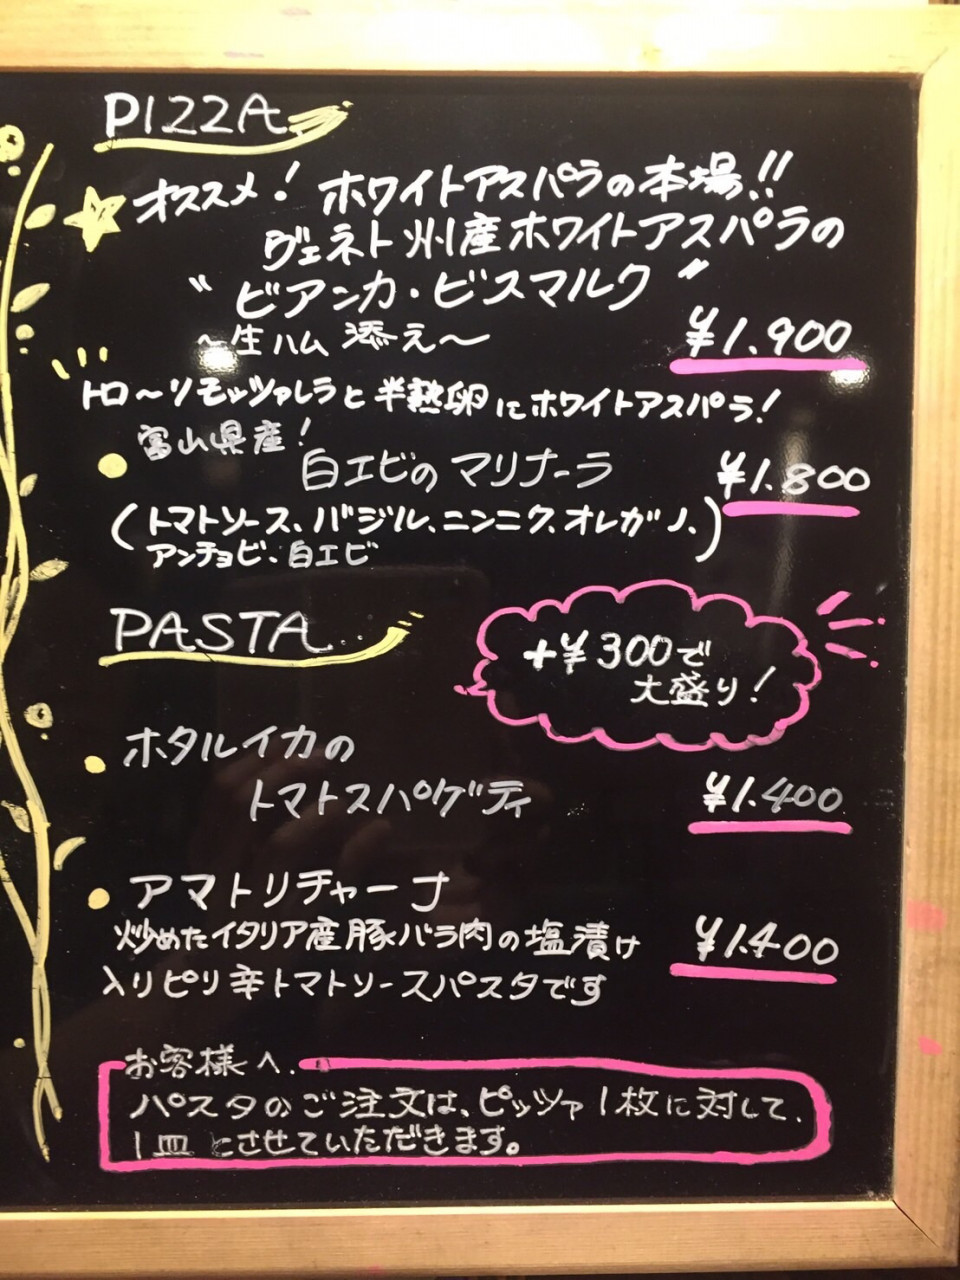 PIZZA
オススメ! ホワイトアスパラの本場!!
ヴェネト州産ホワイトアスパラの
"ビアンカ・ビスマルク"
~生ハム添え~
¥1.900
トロ~リモッツァレラと半熟卵にホワイトアスパラ!
富山県産!
白エビのマリナーラ
¥1.800
(トマトソース、バジル、ニンニク、オレガノ、
アンチョビ、白エビ)
PASTA
+¥300で
大盛り!
ホタルイカの
トマトスパゲティ
¥1.400
アマトリチャーナ
炒めたイタリア産豚バラ肉の塩漬け
¥1.400
入りピリ辛トマトソースパスタです
お客様へ.
パスタのご注文は、ピッツァ1枚に対して、
1皿とさせていただきます。